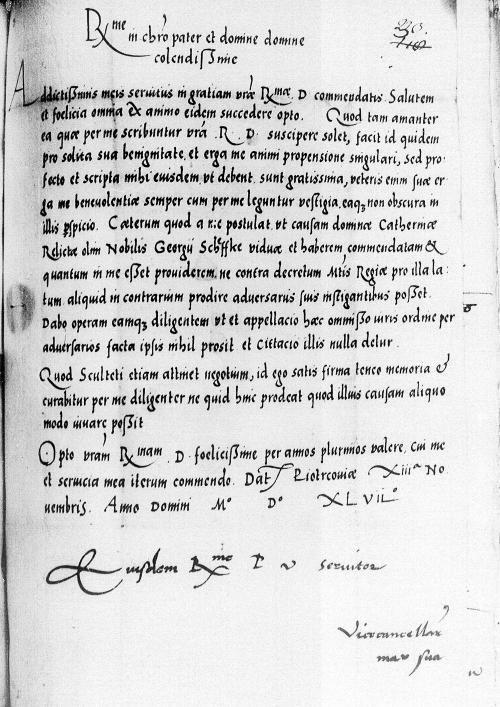 Rme in chro pater et domine domine
colendissime
Addictissimis meis seruitiis in gratiam vrae Rmae. D commendatis. Salutem
et foelicia omnia ex animo eidem succedere opto. Quod tam amanter
ea quae per me scribuntur vra. R. D. suscipere solet, facit id quidem
pro solita sua benignitate, et erga me animi propensione singulari, sed pro:
fecto et scripta mihi eiusdem, vt debent, sunt gratissima, veteris enim suae er
ga me beneuolentiae semper cum per me leguntur vestigia, eaq3 non obscura in
illis pspicio. Caeterum quod a me postulat, vt causam dominae Catherinae
Relictae olim Nobilis Georgii Scheffke viduae et haberem commendatam &
quantum in me esset prouiderem, ne contra decretum Mtis Regiae pro illa la:
tum aliquid in contrarium prodire aduersariis suis instigantibus posset.
Dabo operam eamq3 diligentem vt et appellacio haec omisso iuris ordine per
aduersarios facta ipsis nihil prosit et Citacio illis nulla detur.
Quod Sculteti etiam attinet negotium, id ego satis firma teneo memoria &
curabitur per me diligenter ne quid hinc prodeat quod illius causam aliquo
modo iuuare possit
Opto vram Rmam. D. foelicissime per annos plurimos valere, cui me
et seruicia mea iterum commendo. Dat Piotrcouiae XIIIa No
uembris. Anno Domini Mo Do XLVIIo
Eiusdem Rme P v seruitor
Vicecancellarius
manu sua